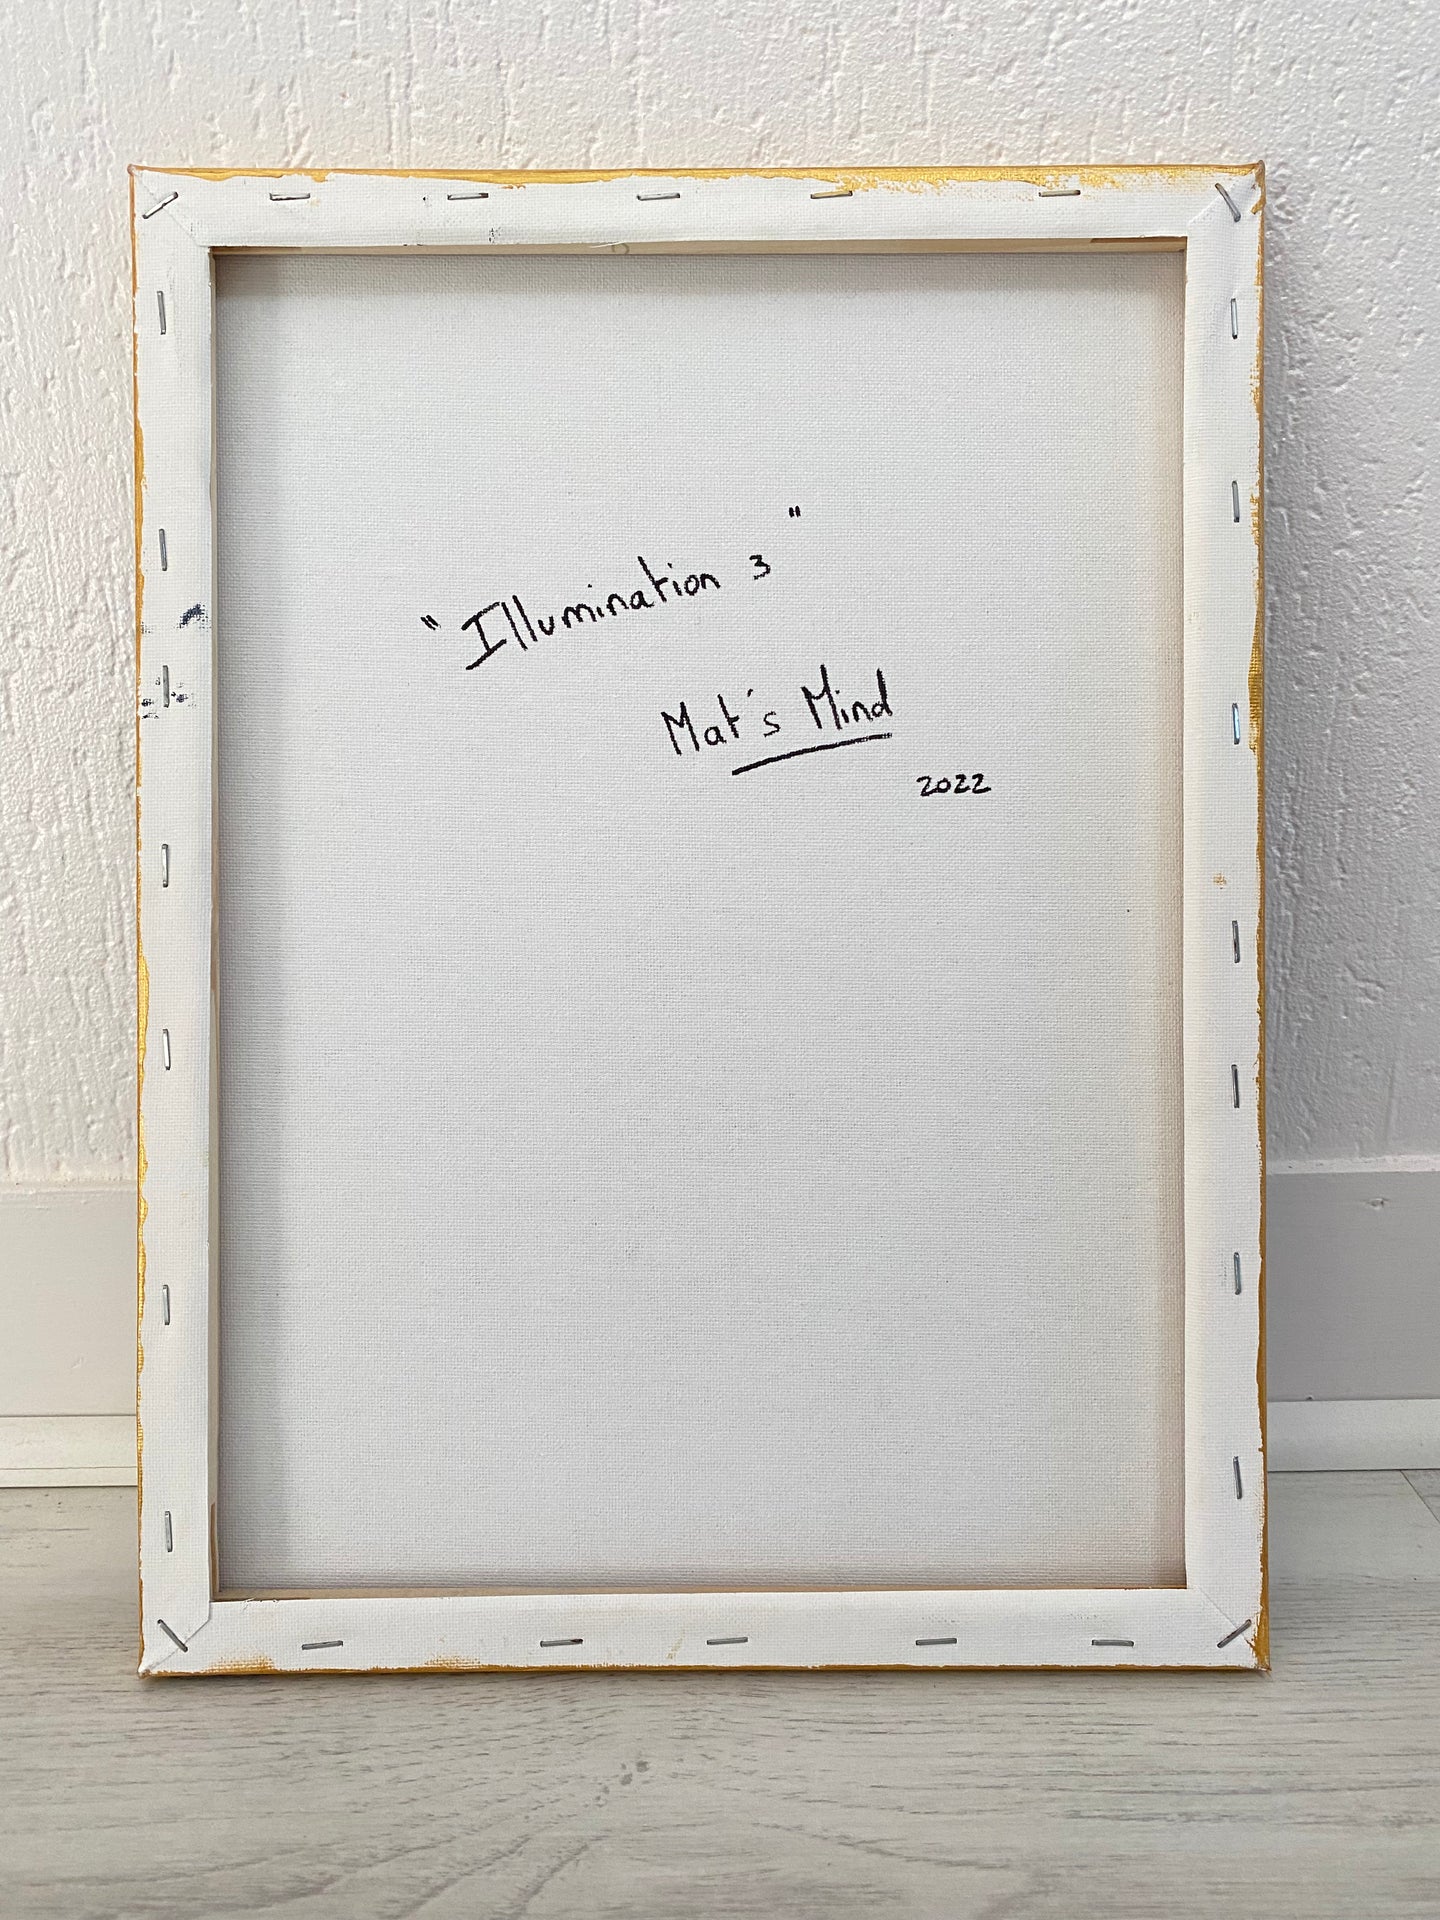 "Illumination 3"
Mat's Mind
2022